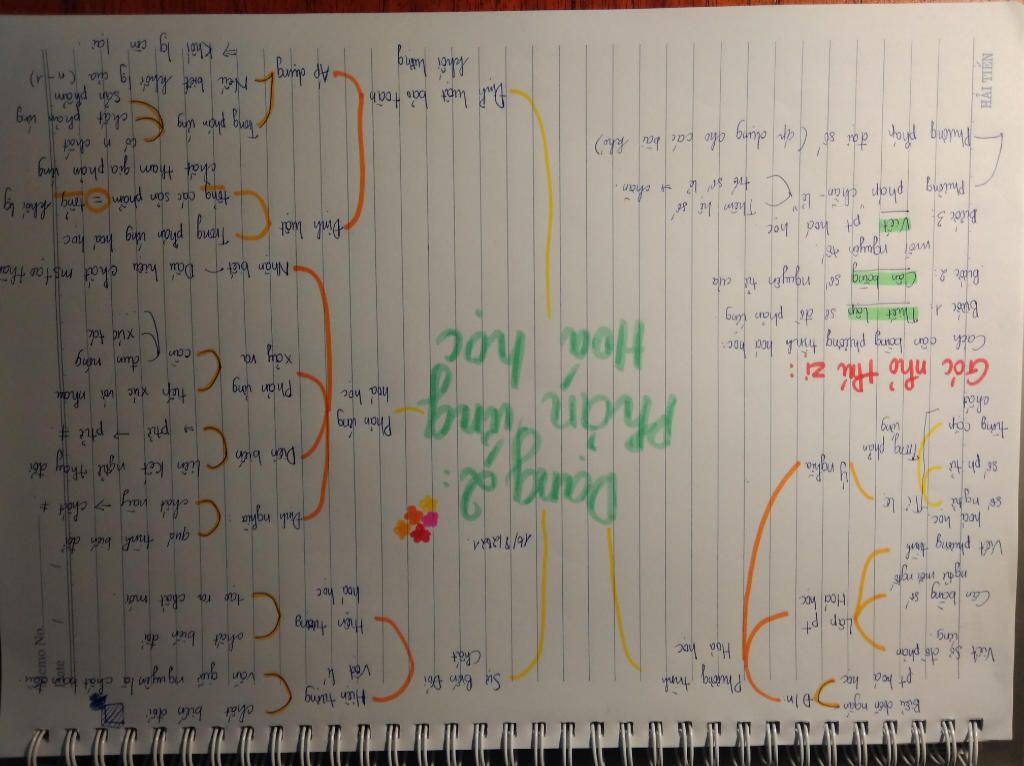 HẢI TIẾN
Memo No.
Date / /
Dạng 2:
Phản ứng
Hoá học
16/8/2021
Sự Biến Đổi
Chất
Hiện tượng
Vật lí
chất biến đổi
vẫn giữ nguyên là chất ban đầu
Hiện tượng
hoá học
chất biến đổi
tạo ra chất mới
Phản ứng
hoá học
Định nghĩa:
quá trình biến đổi
chất này → chất ≠
Diễn biến
Liên kết ngtử thay đổi
→ phtử → phtử ≠
Phản ứng
xảy ra
tiếp xúc với nhau
cần
đun nóng
xúc tác
Nhận biết - Dấu hiệu chất mới tạo thành
Định luật bảo toàn
khối lượng
Định luật
Trong phản ứng hoá học
tổng các sản phẩm = tổng khối lg
chất tham gia phản ứng
Áp dụng
Trong phản ứng
có n chất
chất phản ứng
sản phẩm
Nếu biết khối lg của (n-1)
⇒ Khối lg còn lại.
Phương trình
Hoá học
Đ/n
Biểu diễn ngắn
pt hoá học
Lập pt
Hoá học
Viết Sơ đồ phản
ứng
Cân bằng số
ngtử mỗi ngtố
Viết phương trình
hoá học
Ý nghĩa
Tỉ lệ
số ngtử
số ph tử
từng cặp
chất
Trong phản
ứng
Góc nhỏ thú zị:
Cách cân bằng phương trình hoá học:
Bước 1: Thiết lập sơ đồ phản ứng
Bước 2: Cân bằng số nguyên tử của
mỗi nguyên tố.
Bước 3: Viết pt hoá học
Phương pháp "chẵn - lẻ"
Thêm hệ số
trc số lẻ → chẵn.
Phương pháp đại số (áp dụng cho các bài khó)